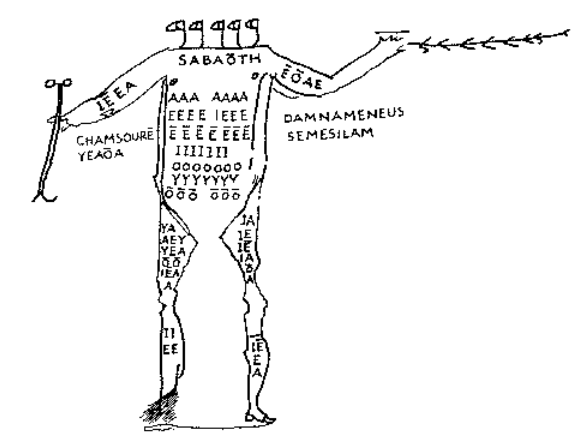 SABAŌTH
IĒEA
ĒŌAE
CHAMSOURĒ
YEAŌA
DAMNAMENEUS
SEMESILAM
AAA AAAA
EEEE IEEE
ĒĒĒĒ ĒĒĒ
IIIIIII
OOOOOOO
YYYYYYY
ŌŌŌ ŌŌŌ
YA
AEY
YEA
ŌŌ
IEA
A
IA
IE
IE
IA
ŌA
A
II
EE
IE
E
A